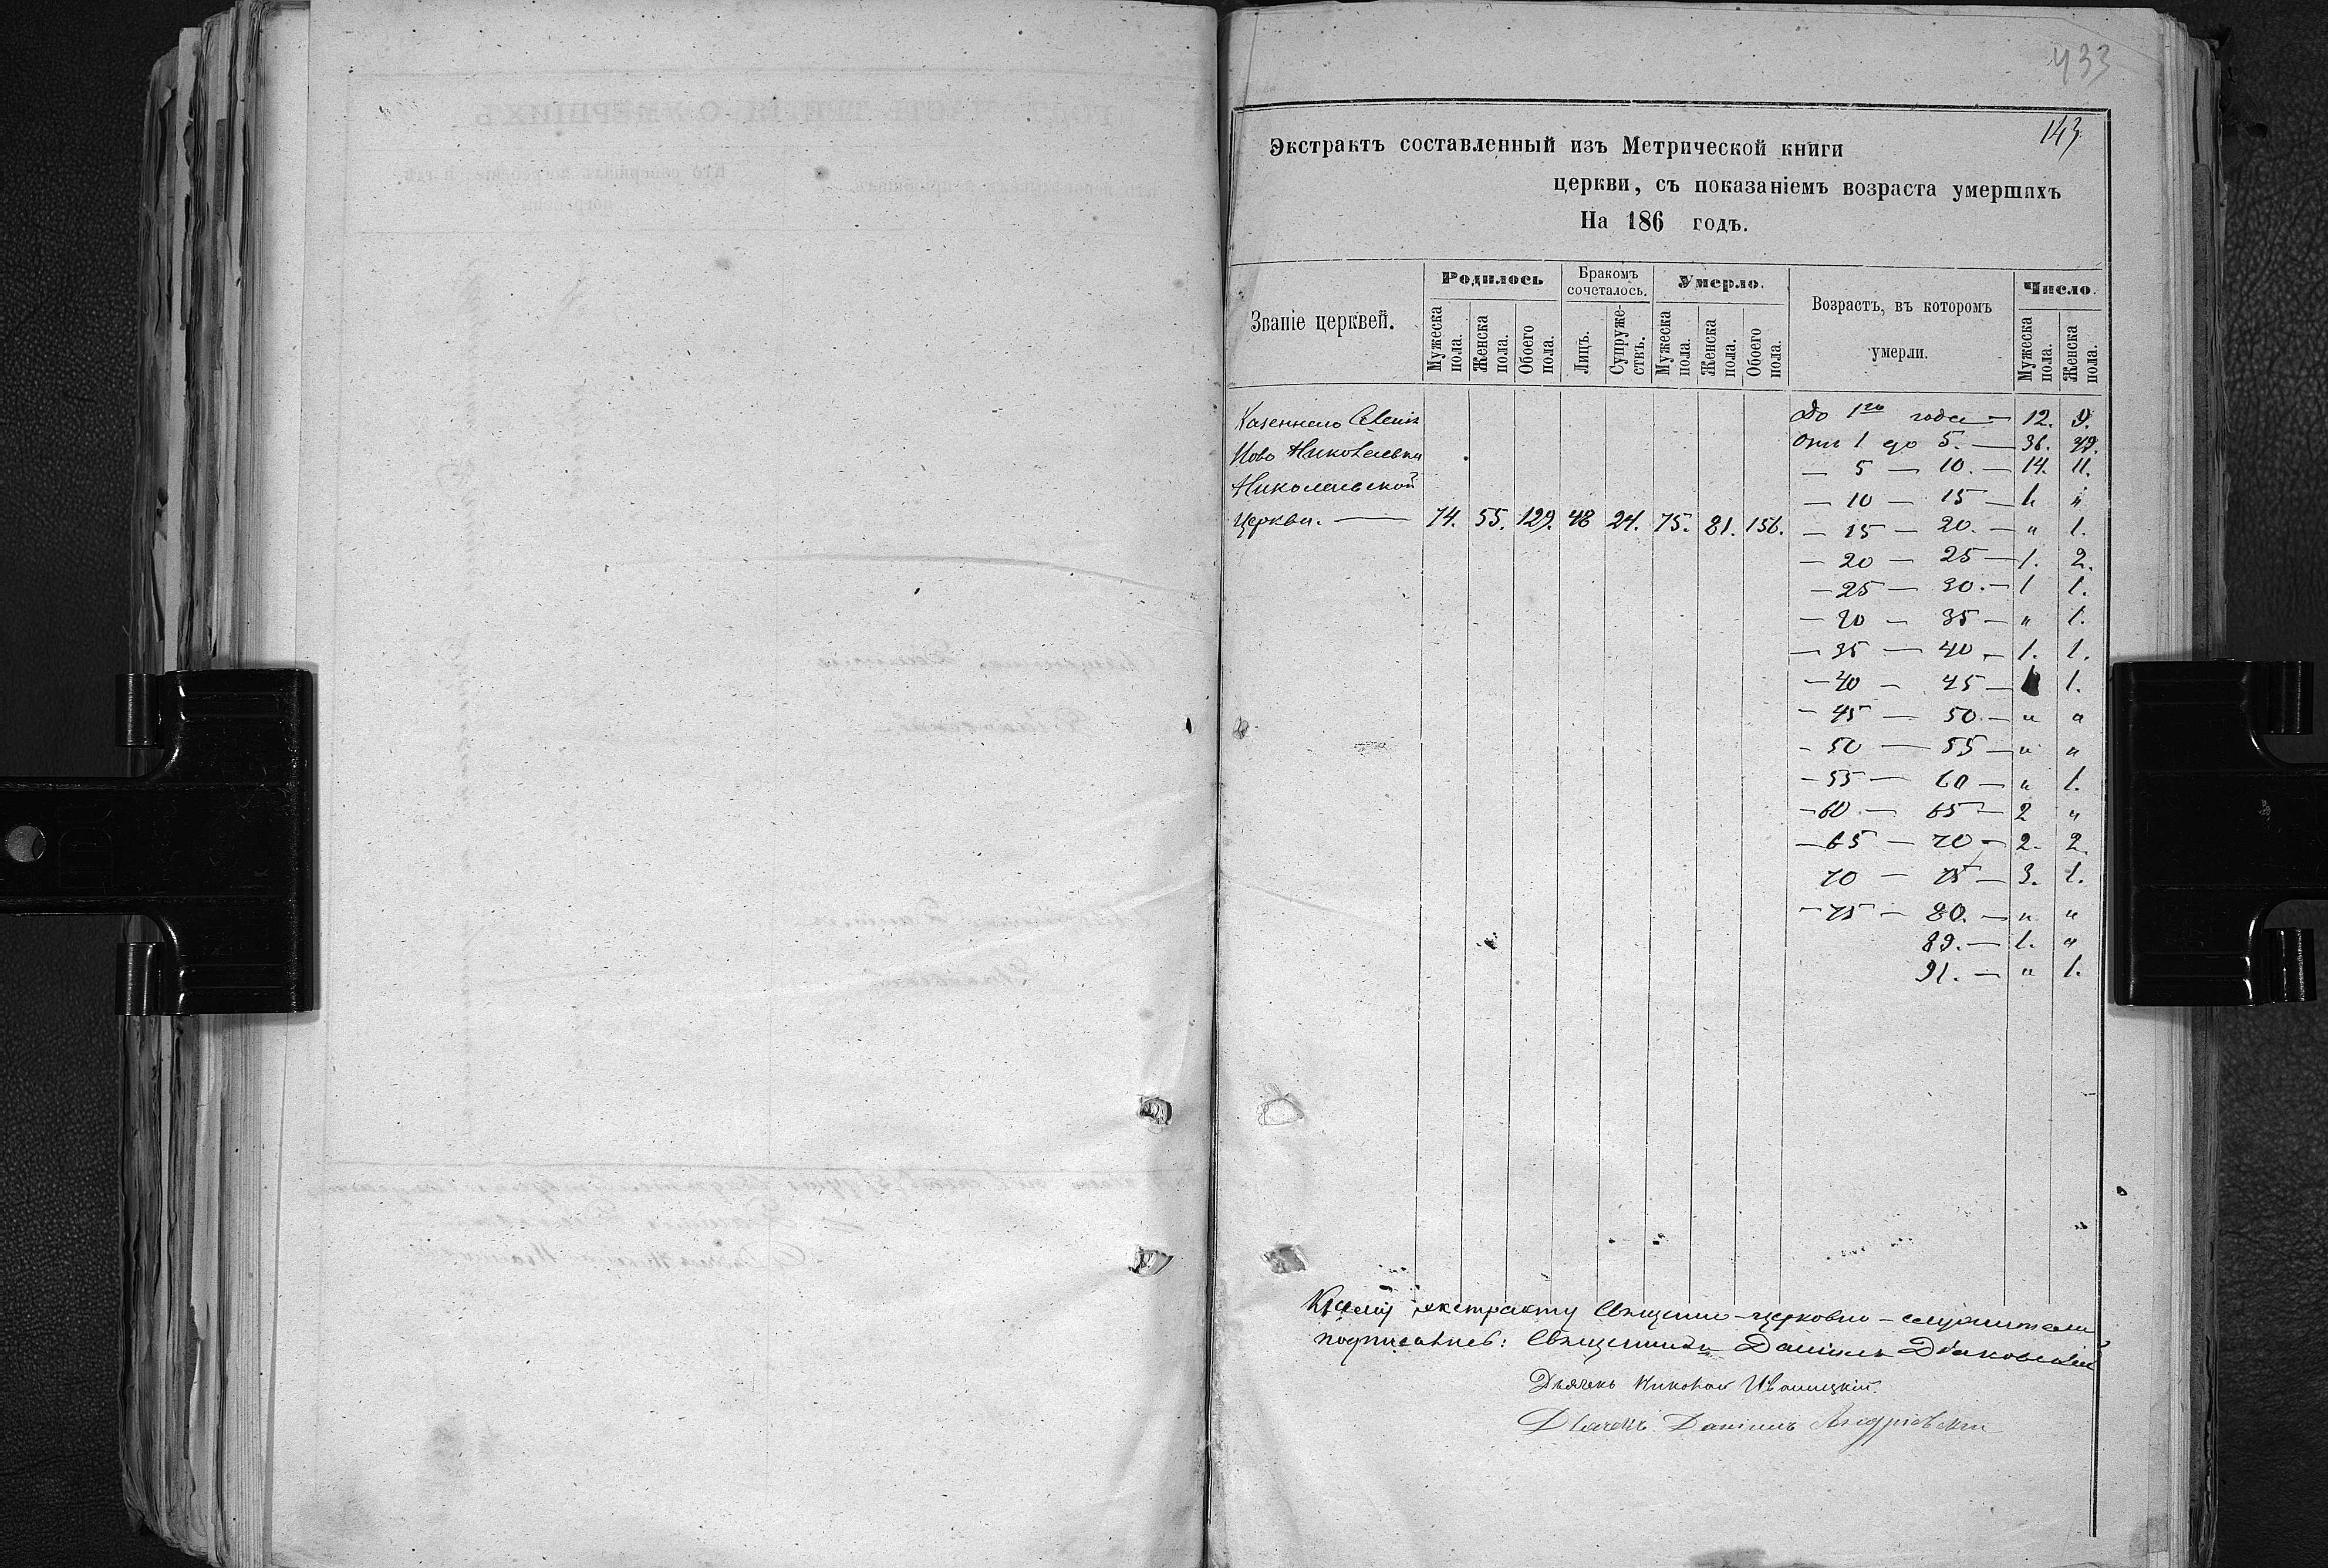 433
143
Экстрактъ составленный изъ Метрической книги
церкви, съ показаніемъ возраста умершихъ
На 186 годъ.
Званіе церквей.
Родилось
Бракомъ сочеталось.
Умерло.
Возрастъ, въ котором умерли.
Число.
Мужеска пола. Женска пола. Обоего пола. Лицъ. Супружествъ. Мужеска пола. Женска пола. Обоего пола. Мужеска пола. Женска пола.
Казеннаго Селенія
Ново Николаевки
Николаевской
Церкви. — 74. 55. 129. 48 24. 75. 81. 156.
До 1го года — 12. 9.
Отъ 1 до 5. — 36. 49.
— 5 — 10. — 14. 11.
— 10 — 15 — 1. "
— 15 — 20. — " 1.
— 20 — 25 — 1. 2.
— 25 — 30. — 1 1.
— 30 — 35 — " 1.
— 35 — 40 — 1. 1.
— 40 — 45 — 1.
— 45 — 50. — " "
— 50 — 55 — " "
— 55 — 60 — " 1.
— 60 — 65 — 2 "
— 65 — 70 — 2. 2.
70 — 75 — 3. 1.
— 75 — 80. — " "
89. — 1. "
91. — " 1.
экстракту Священно-церковно-служители
подписались: Священникъ Даніилъ Дьяковскій
Дьячекъ Николай Иваницкій.
Дьячекъ Даніилъ Андріевскій